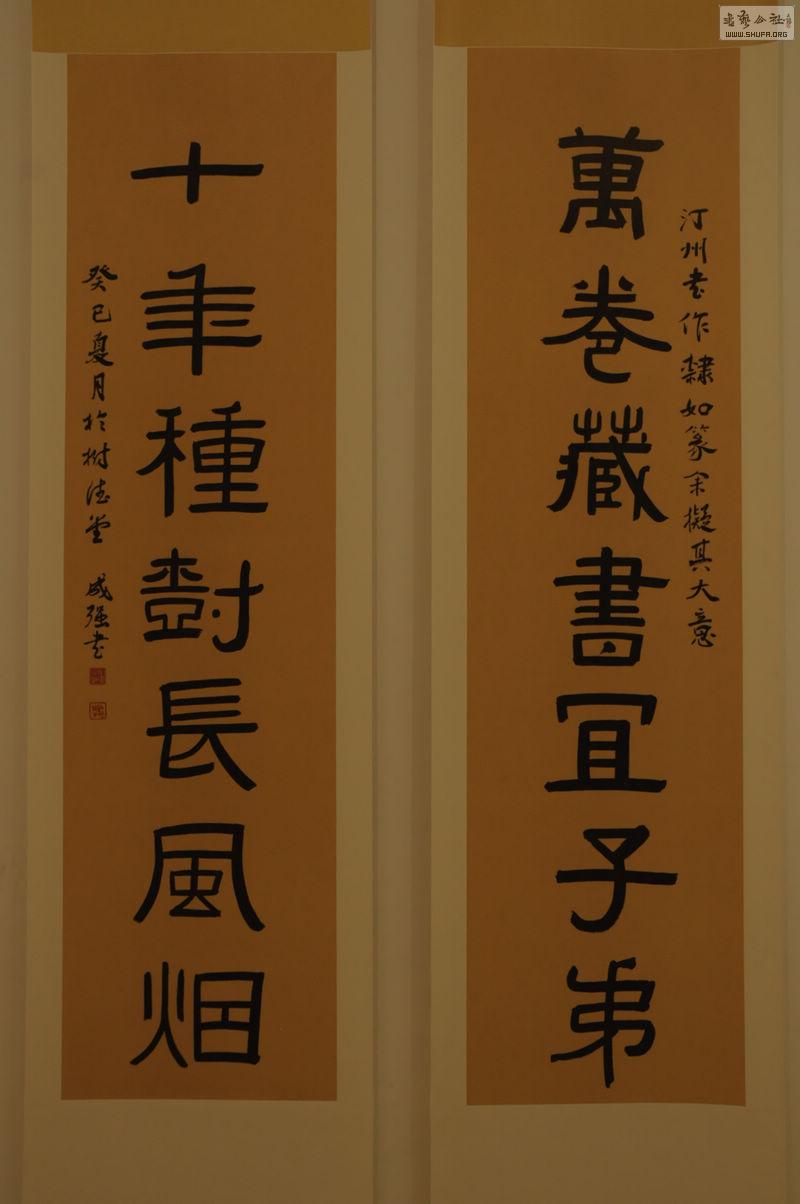 汀州书作隸如篆余擬其大意
萬卷藏書宜子弟
十年種樹長風烟
癸巳夏月於樹德堂 成强书
WWW.SHUFA.ORG